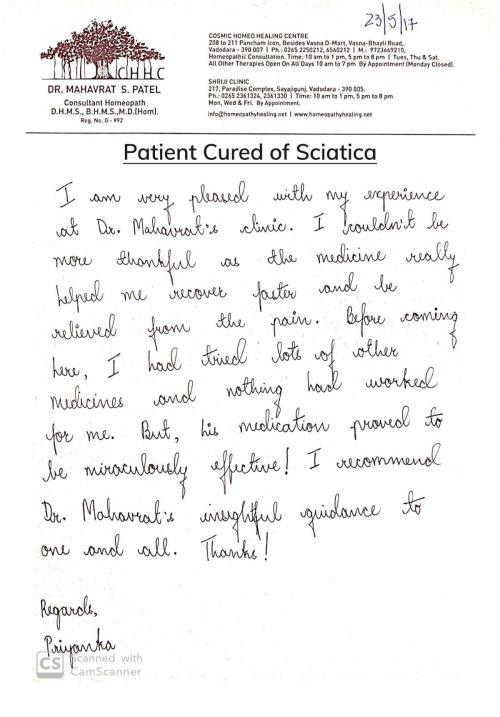 23/5/17
CHHC
DR. MAHAVRAT S. PATEL
Consultant Homeopath
D.H.M.S., B.H.M.S.,M.D.(Hom).
Reg. No. G - 992
COSMIC HOMEO HEALING CENTRE
208 to 211 Pancham Icon, Besides Vasna D-Mart, Vasna-Bhayli Road,
Vadodara - 390 007 | Ph.: 0265 2250212, 6560212 | M.: 9723469210,
Homeopathic Consultation, Time: 10 am to 1 pm, 5 pm to 8 pm | Tues, Thu & Sat.
All Other Therapies Open On All Days 10 am to 7 pm By Appointment (Monday Closed).
SHRIJI CLINIC
217, Paradise Complex, Sayajigunj, Vadodara - 390 005.
Ph.: 0265 2361324, 2361330 | Time: 10 am to 1 pm, 5 pm to 8 pm
Mon, Wed & Fri. By Appointment.
info@homeopathyhealing.net | www.homeopathyhealing.net
Patient Cured of Sciatica
I am very pleased with my experience
at Dr. Mahavrat's clinic. I couldn't be
more thankful as the medicine really
helped me recover faster and be
relieved from the pain. Before coming
here, I had tried lots of other
medicines and nothing had worked
for me. But, his medication proved to
be miraculously effective! I recommend
Dr. Mahavrat's insightful guidance to
one and all. Thanks!
Regards,
Priyanka
CS Scanned with
CamScanner